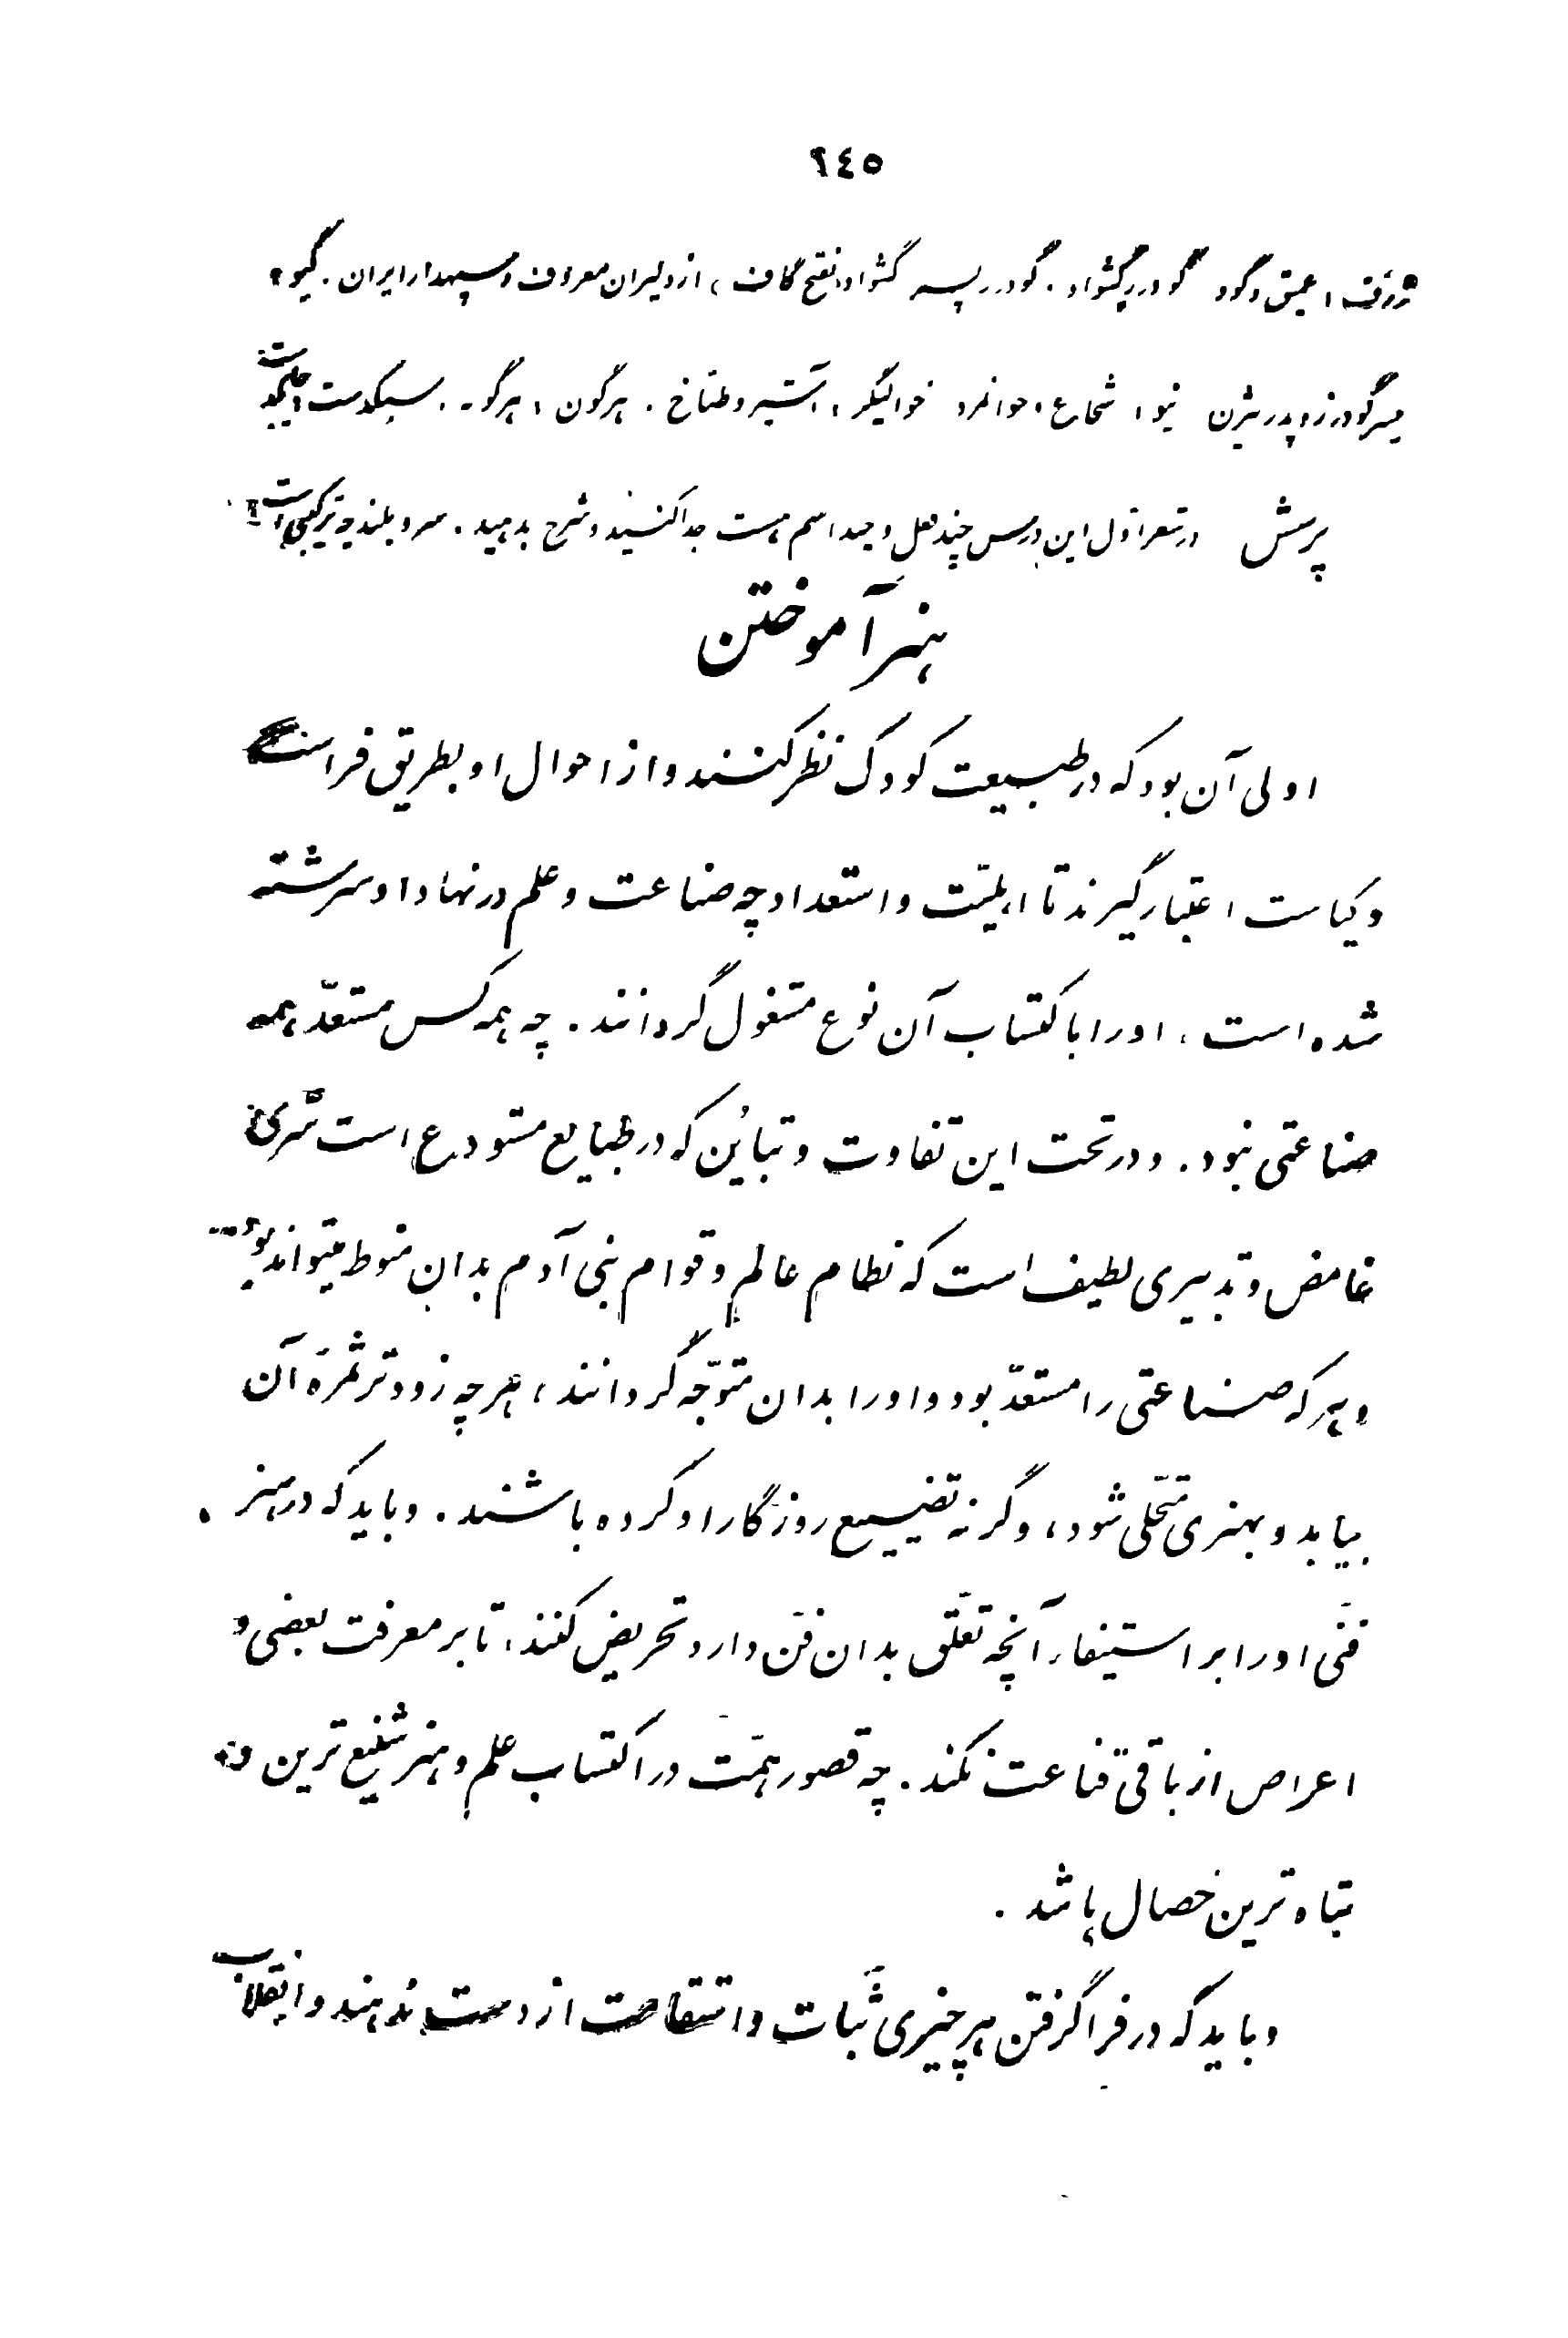 ٢٤٥
ژرف، عمیق و گود گودرز گشواد. گودرز پسر گشواد بفتح گاف، از دلیران معروف و سپهدار ایران. گیو،
پسر گودرز و پدر بیژن نیو، شجاع، جوانمرد خوالیگر، آشپز و طباخ. هرگون، هرگونه. سبکدست،
پرسش در شعر اول این درس چند فعل و چند اسم هست جدا کنید و شرح بدهید. سرو بلند چه ترکیبی است؟
هنر آموختن
اولی آن بود که در طبیعت کودک نظر کنند و از احوال او بطریق فراست
و کیاست اعتبار گیرند تا اهلیّت و استعداد چه صناعت و علم در نهاد او سرشته
شده است، او را باکتساب آن نوع مشغول گردانند. چه همه کس مستعدّ همه
صناعتی نبود. و در تحت این تفاوت و تباین که در طبایع مستودع است سرّی
غامض و تدبیری لطیف است که نظام عالم و قوام بنی آدم بدان منوط میتواند بود.
و هر که صناعتی را مستعدّ بود و او را بدان متوجّه گردانند، هر چه زودتر ثمرهٔ آن
بیابد و بهنری متحلّی شود، و گرنه تضییع روزگار او کرده باشند. و باید که در هنر
فنّی او را بر استیفاء آنچه تعلّق بدان فنّ دارد تحریض کنند، تا بر معرفت بعضی و
اعراض از باقی قناعت نکند. چه قصور همّت در اکتساب علم و هنر شنیع‌ترین و
تباه‌ترین خصال باشد.
و باید که در فرا گرفتن هر چیزی ثبات و استقامت از دست ندهند و انقلاب